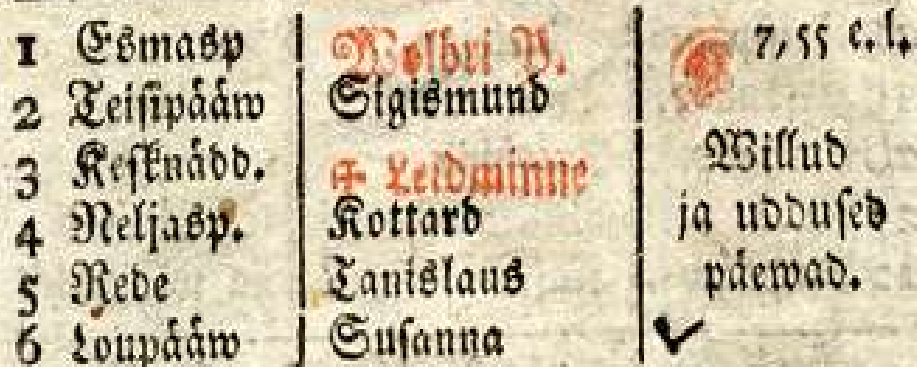 1 Esmasp Wolbri P. 7, 55 e. l.
2 Teisipääw Sigismund
3 Kesknädd. ✠ Leidminne Willud
4 Neljasp. Kottard ja uddused
5 Rede Tanislaus päewad.
6 Loupääw Susanna